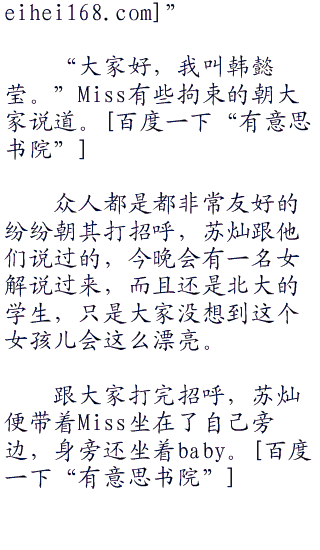 eihei168.com]”
“大家好，我叫韩懿
莹。”Miss有些拘束的朝大
家说道。[百度一下“有意思
书院”]
众人都是都非常友好的
纷纷朝其打招呼，苏灿跟他
们说过的，今晚会有一名女
解说过来，而且还是北大的
学生，只是大家没想到这个
女孩儿会这么漂亮。
跟大家打完招呼，苏灿
便带着Miss坐在了自己旁
边，身旁还坐着baby。[百度
一下“有意思书院”]